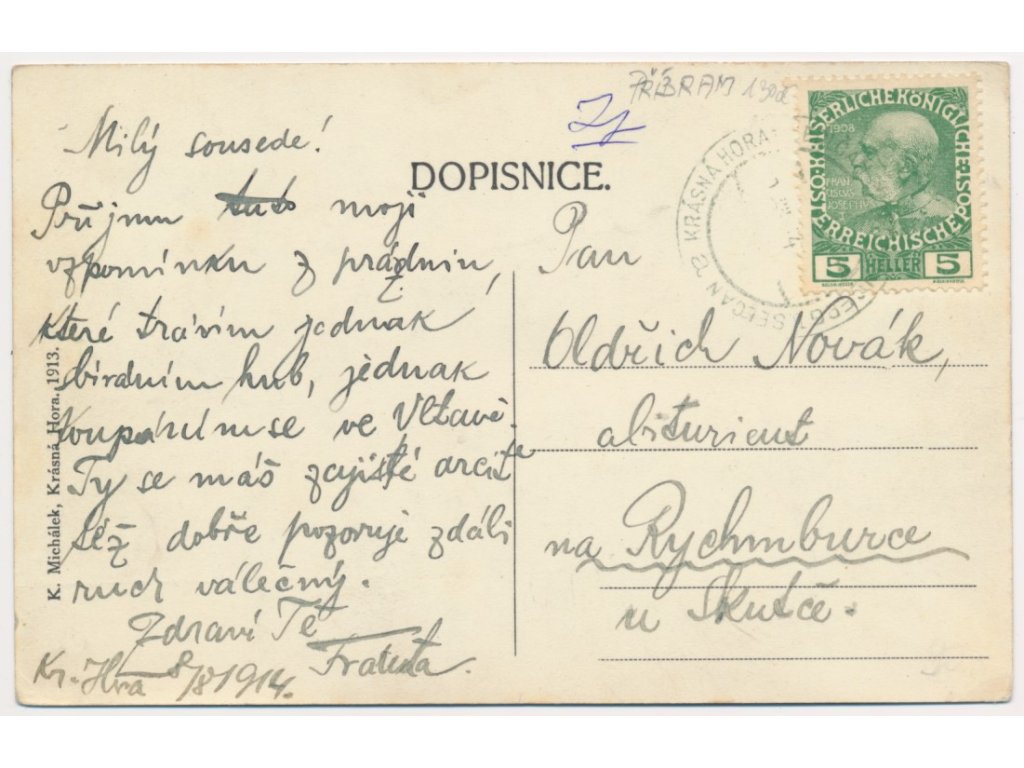 Milý sousede!
Přijmu tuto moji
vzpomínku z prázdnin,
které trávím jednak
bíráním hub, jednak
koupáním se ve Vltavě.
Ty se máš zajisté arcitě
též dobře pozoruje zdáli
ruch válečný.
Zdraví Tě
Frantа
Kr. Hora 8/8 1914.
K. Michálek, Krásná Hora. 1913.
DOPISNICE.
PŘÍBRAM
KRÁSNÁ HORA
SELČAN
KAISERLICHE KÖNIGLICHE
ÖSTERREICHISCHE POST
1908
FRAN
CISCVS
JOSEPHVS
5 HELLER 5
Pan
Oldřich Novák,
abiturient
na Rychmburce
u Skutče.